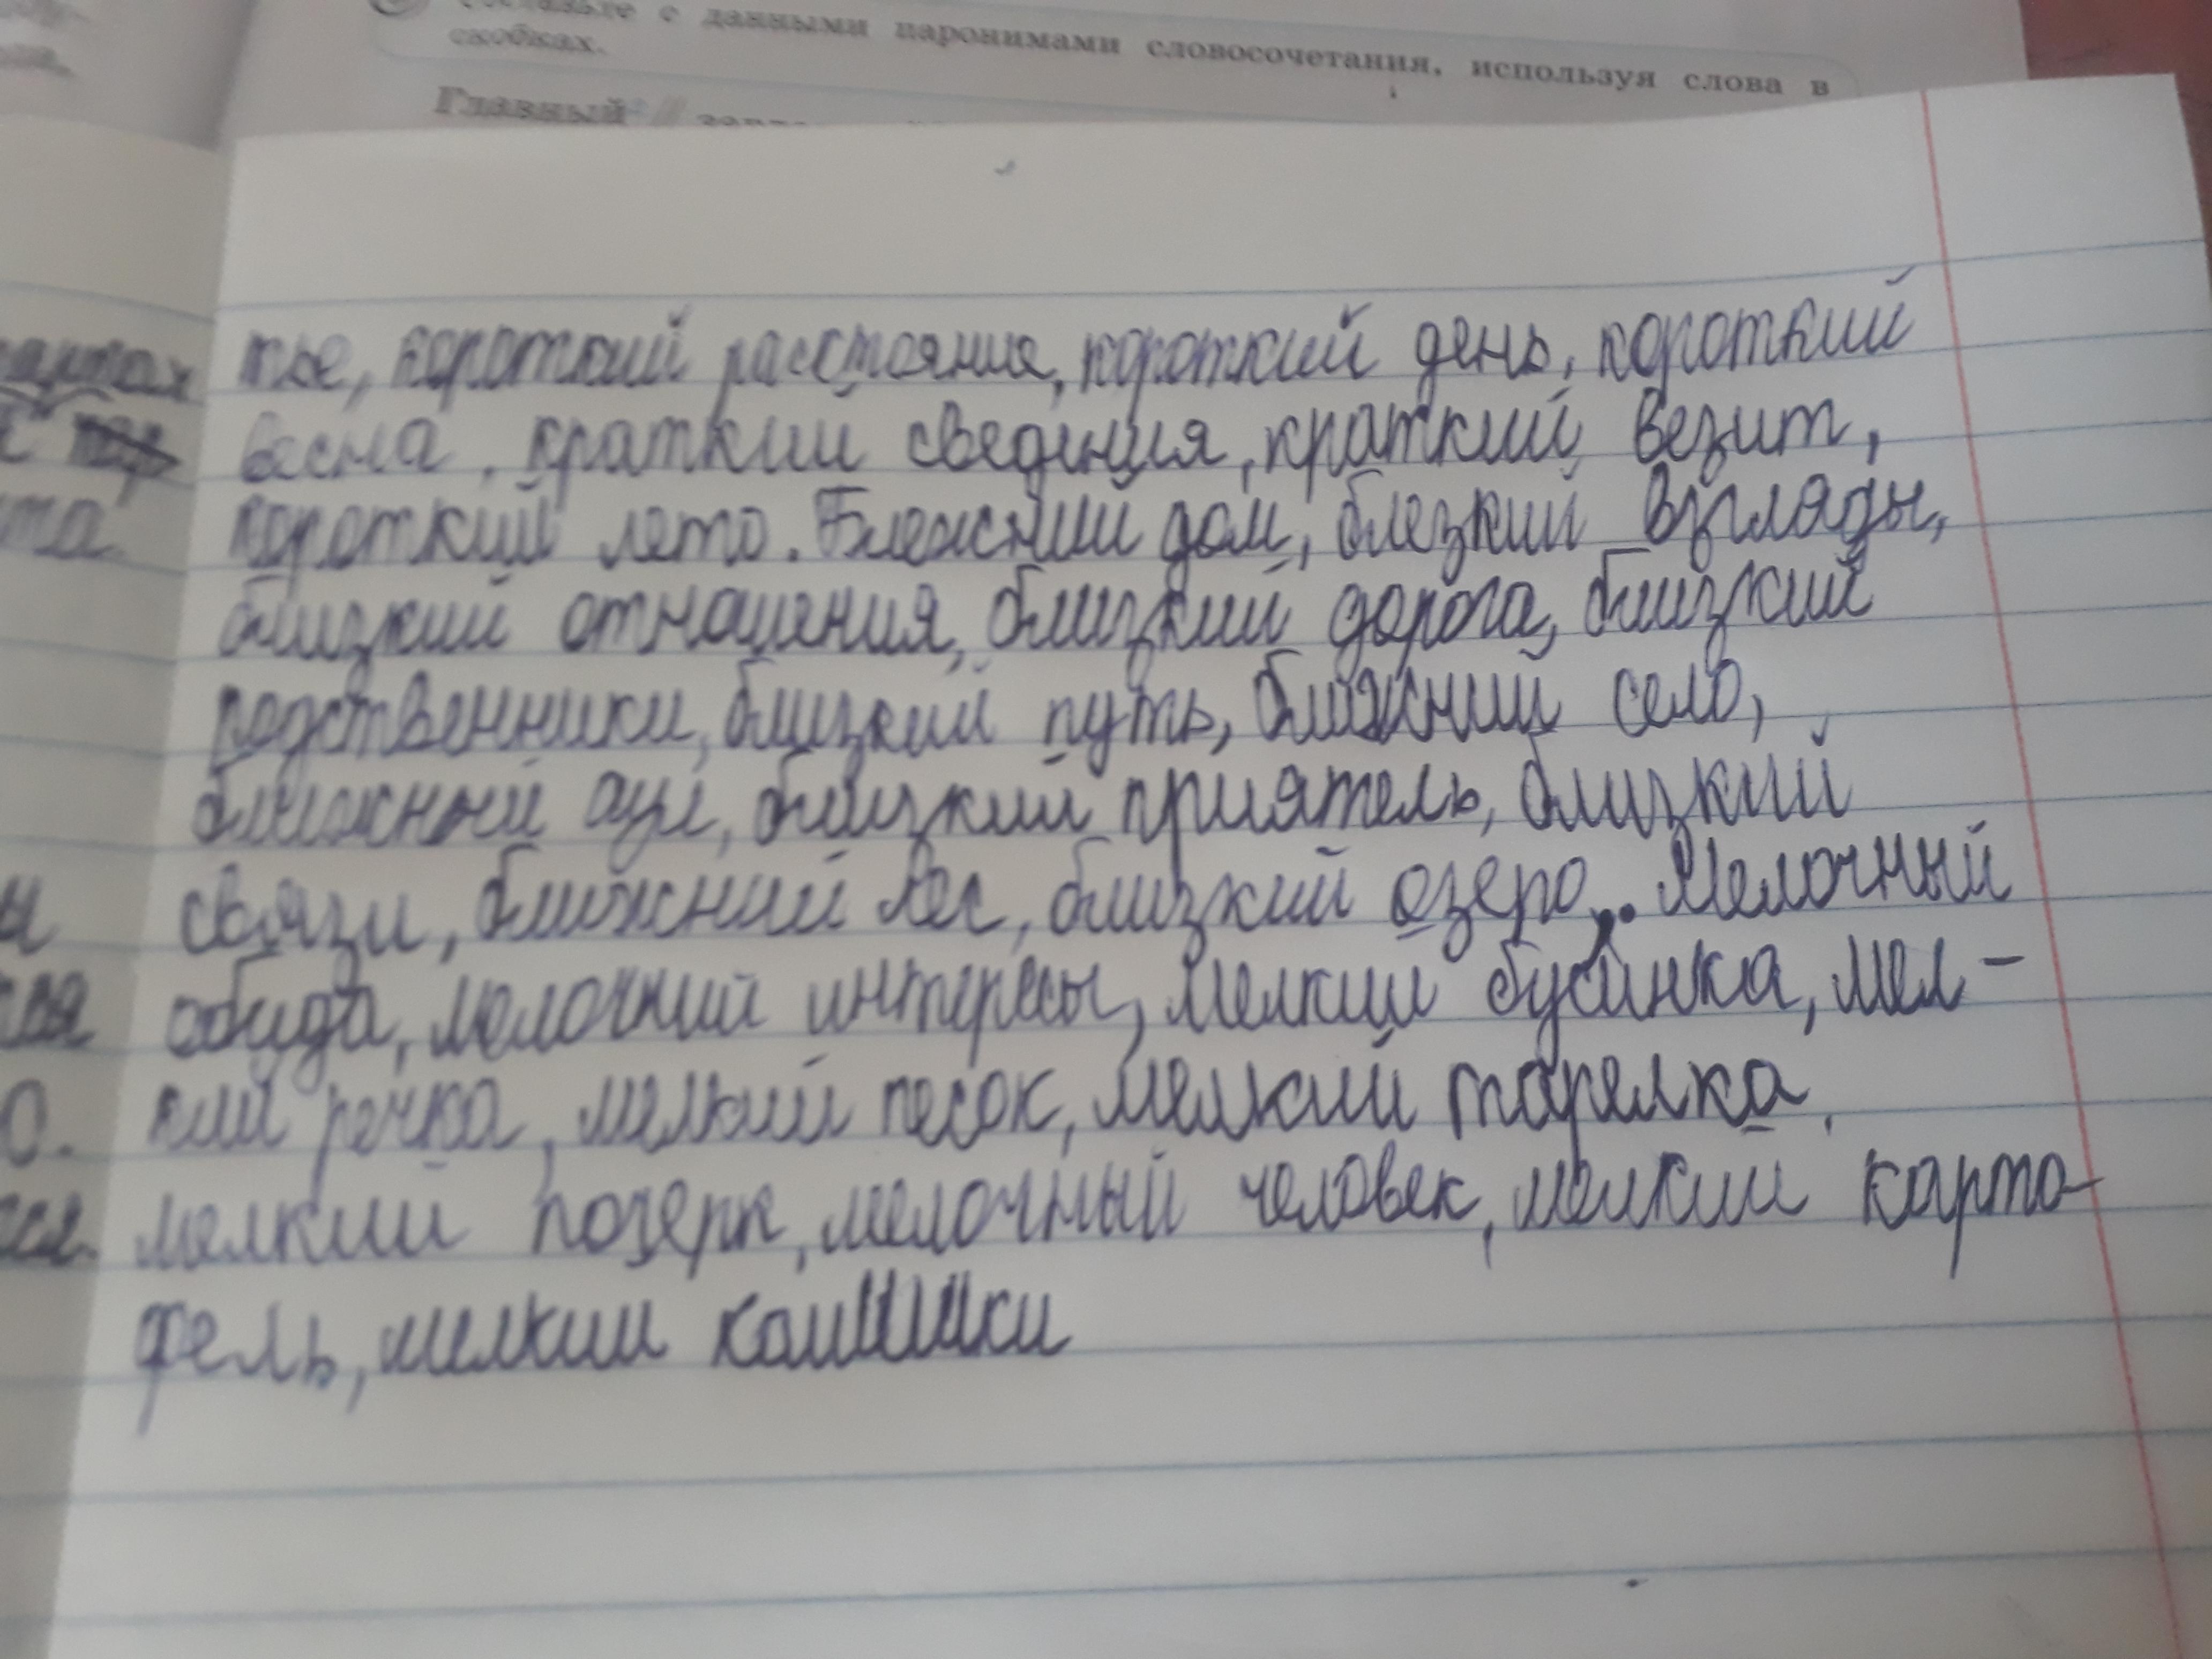 с данными паронимами словосочетания, используя слова в
скобках.
Главный
тье, короткий расстояние, короткий день, короткий
весна, краткий сведения, краткий везит,
короткий лето. Ближний дом, блезкий взгляды,
близкий отношения, близкий дорога, близкий
родственники, близкий путь, ближний село,
ближний аул, близкий приятель, близкий
связи, ближний лес, близкий озеро. Мелочный
обида, мелочний интересы, мелкий бусинка, мел-
кий речка, мелкий песок, мелкий тарелка,
мелкий позерк, мелочный человек, мелкий карто-
фель, мелкий камшики